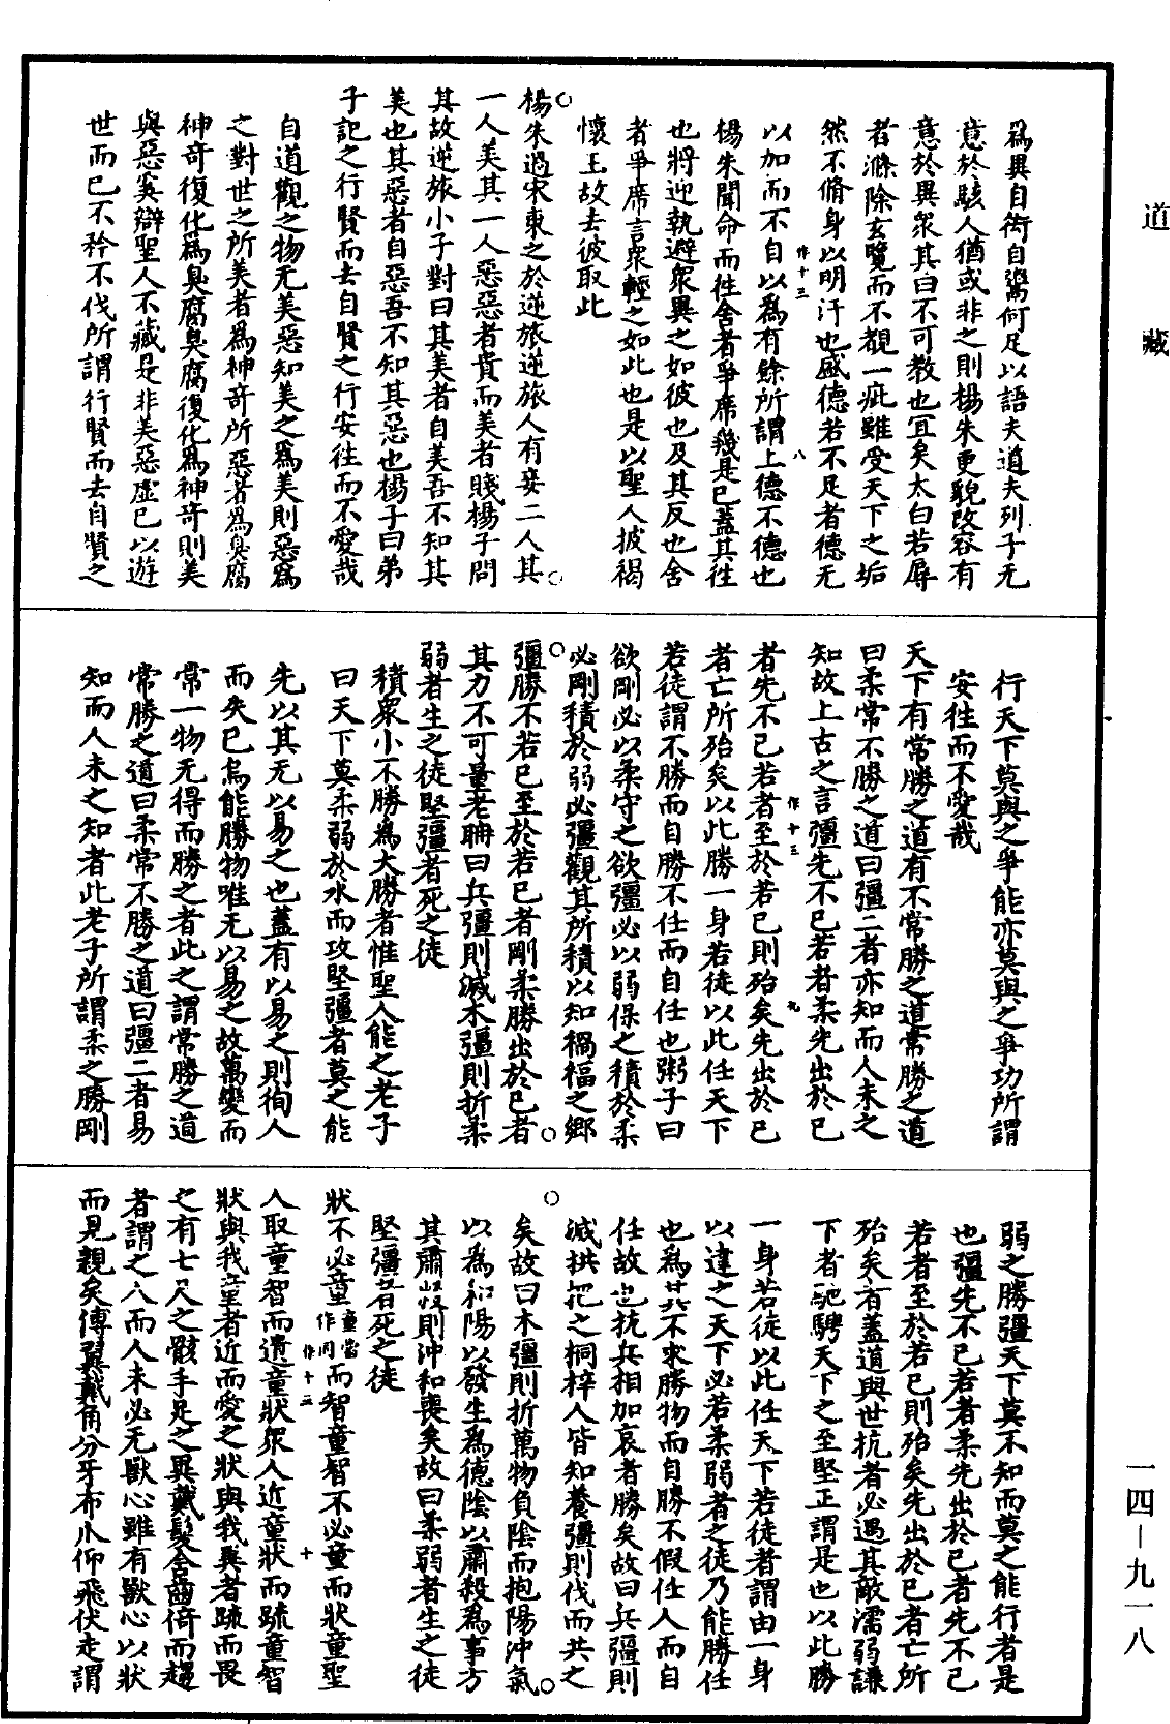 道藏
為異自衒自鬻何足以語夫道夫列子无
意於駭人猶或非之則楊朱更貌改容有
意於異衆其曰不可教也宜矣太白若辱
者滌除玄覽而不覩一疵雖受天下之垢
然不脩身以明汙也盛德若不足者德无
以加而不自以為有餘所謂上德不德也
作十三
八
楊朱聞命而往舍者爭席幾是已蓋其往
也將迎執避衆異之如彼也及其反也舍
者爭席言衆輕之如此也是以聖人披褐
懷玉故去彼取此
○楊朱過宋東之於逆旅逆旅人有妾二人其
一人美其一人惡惡者貴而美者賤楊子問
其故逆旅小子對曰其美者自美吾不知其
美也其惡者自惡吾不知其惡也楊子曰弟
子記之行賢而去自賢之行安往而不愛哉
○
自道觀之物无美惡知美之為美則惡為
之對世之所美者為神奇所惡者為臭腐
神奇復化為臭腐臭腐復化為神奇則美
與惡奚辯聖人不藏是非美惡虛己以遊
世而已不矜不伐所謂行賢而去自賢之
行天下莫與之爭能亦莫與之爭功所謂
安往而不愛哉
天下有常勝之道有不常勝之道常勝之道
曰柔常不勝之道曰彊二者亦知而人未之
知故上古之言彊先不已若者柔先出於已
作十三
九
者先不已若者至於若已則殆矣先出於已
者亡所殆矣以此勝一身若徒以此任天下
若徒謂不勝而自勝不任而自任也粥子曰
欲剛必以柔守之欲彊必以弱保之積於柔
必剛積於弱必彊觀其所積以知禍福之鄉
○彊勝不若已至於若已者剛柔勝出於已者○
其力不可量老聃曰兵彊則滅木彊則折柔
弱者生之徒堅彊者死之徒
積衆小不勝為大勝者惟聖人能之老子
曰天下莫柔弱於水而攻堅彊者莫之能
先以其无以易之也蓋有以易之則徇人
而失已烏能勝物唯无以易之故萬變而
常一物无得而勝之者此之謂常勝之道
常勝之道曰柔常不勝之道曰彊二者易
知而人未之知者此老子所謂柔之勝剛
弱之勝彊天下莫不知而莫之能行者是
也彊先不已若者柔先出於已者先不已
若者至於若已則殆矣先出於已者亡所
殆矣者蓋道與世抗者必遇其敵濡弱謙
下者馳騁天下之至堅正謂是也以此勝
一身若徒以此任天下若徒者謂由一身
以達之天下必若柔弱者之徒乃能勝任
也為其不求勝物而自勝不假任人而自
任故也抗兵相加哀者勝矣故曰兵彊則
滅拱把之桐梓人皆知養彊則伐而共之
○矣故曰木彊則折萬物負陰而抱陽沖氣○
以為和陽以發生為德陰以肅殺為事方
其肅殺則沖和喪矣故曰柔弱者生之徒
堅彊者死之徒
狀不必童童當作同而智童智不必童而狀童聖
作十三
十
人取童智而遺童狀衆人近童狀而疏童智
狀與我童者近而愛之狀與我異者疏而畏
之有七尺之骸手足之異戴髮含齒倚而趨
者謂之人而人未必无獸心雖有獸心以狀
而見親矣傅翼戴角分牙布爪仰飛伏走謂
一四—九一八